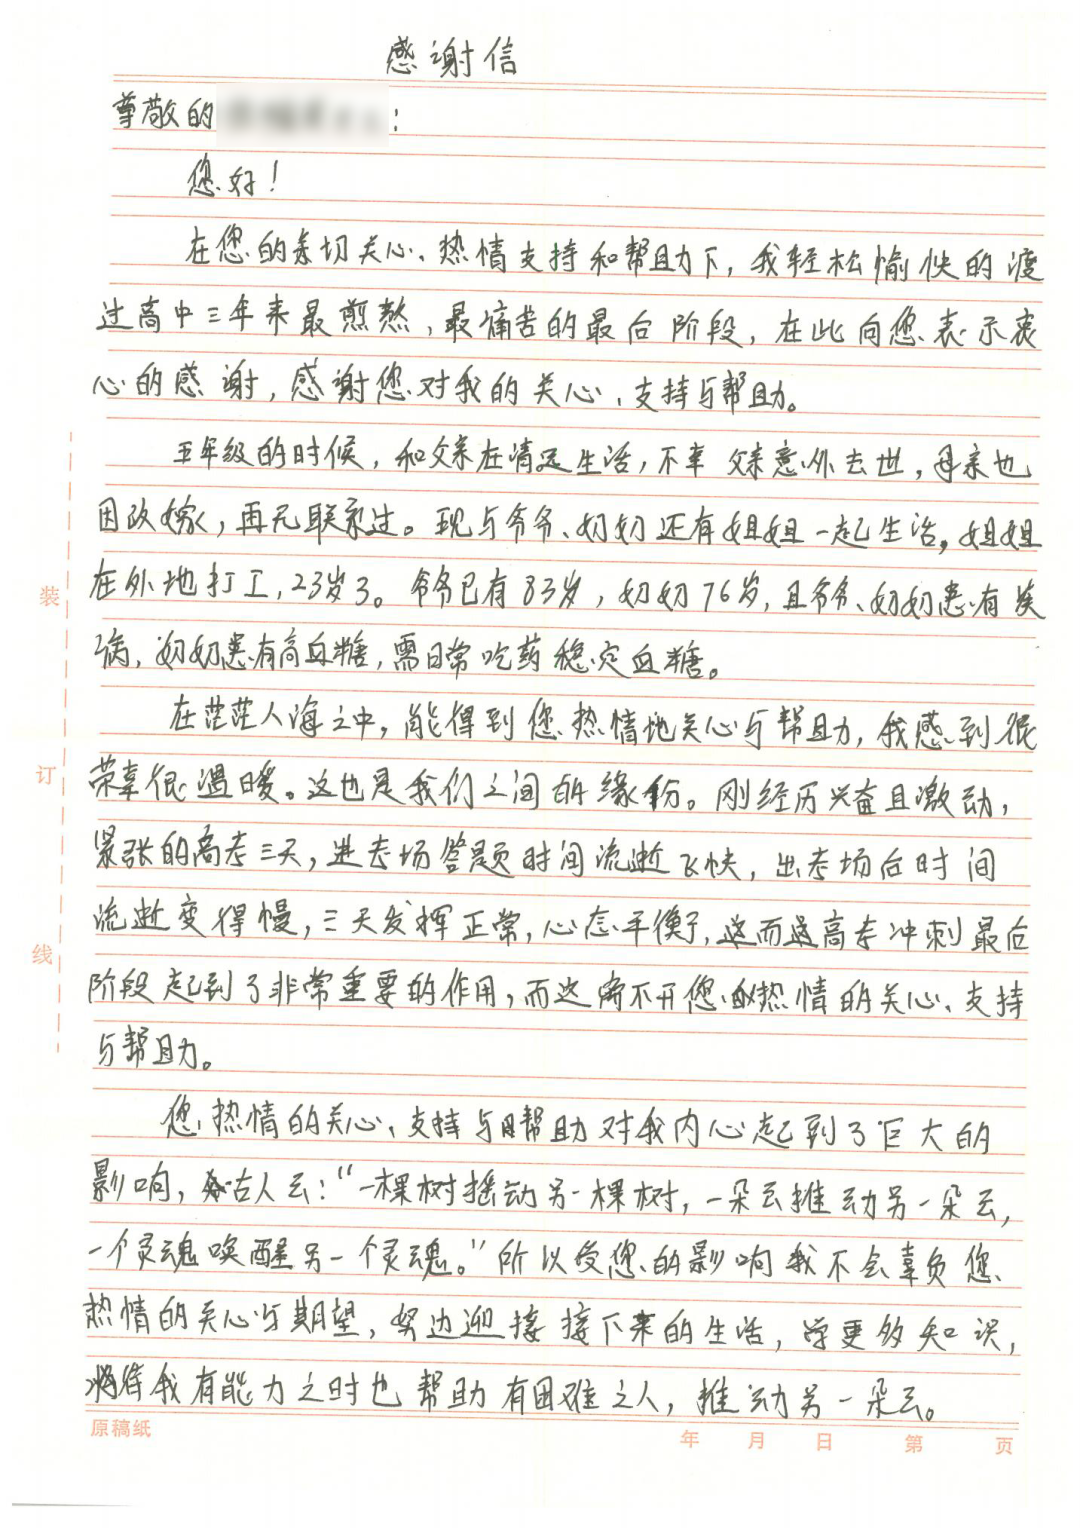 感谢信
尊敬的 :
您好!
在您的亲切关心、热情支持和帮助下,我轻松愉快的渡
过高中三年来最煎熬、最痛苦的最后阶段,在此向您表示衷
心的感谢,感谢您对我的关心、支持与帮助。
五年级的时候,和父亲在清远生活,不幸父亲意外去世,母亲也
因改嫁,再无联系过。现与爷爷、奶奶还有姐姐一起生活,姐姐
在外地打工,23岁了。爷爷已有83岁,奶奶76岁,且爷爷、奶奶患有疾
病,奶奶患有高血糖,需日常吃药稳定血糖。
在茫茫人海之中,能得到您热情地关心与帮助,我感到很
荣幸很温暖。这也是我们之间的缘份。刚经历兴奋且激动,
紧张的高考三天,进考场答题时间流逝飞快,出考场后时间
流逝变得慢,三天发挥正常,心态平衡了,这而这高考冲刺最后
阶段起到了非常重要的作用,而这离不开您的热情的关心、支持
与帮助。
您热情的关心、支持与帮助对我内心起到了巨大的
影响,古人云:“一棵树摇动另一棵树,一朵云推动另一朵云,
一个灵魂唤醒另一个灵魂。”所以受您的影响我不会辜负您
热情的关心与期望,努边迎接接下来的生活,学更多知识,
将待我有能力之时也帮助有困难之人,推动另一朵云。
装
订
线
原稿纸
年 月 日 第 页